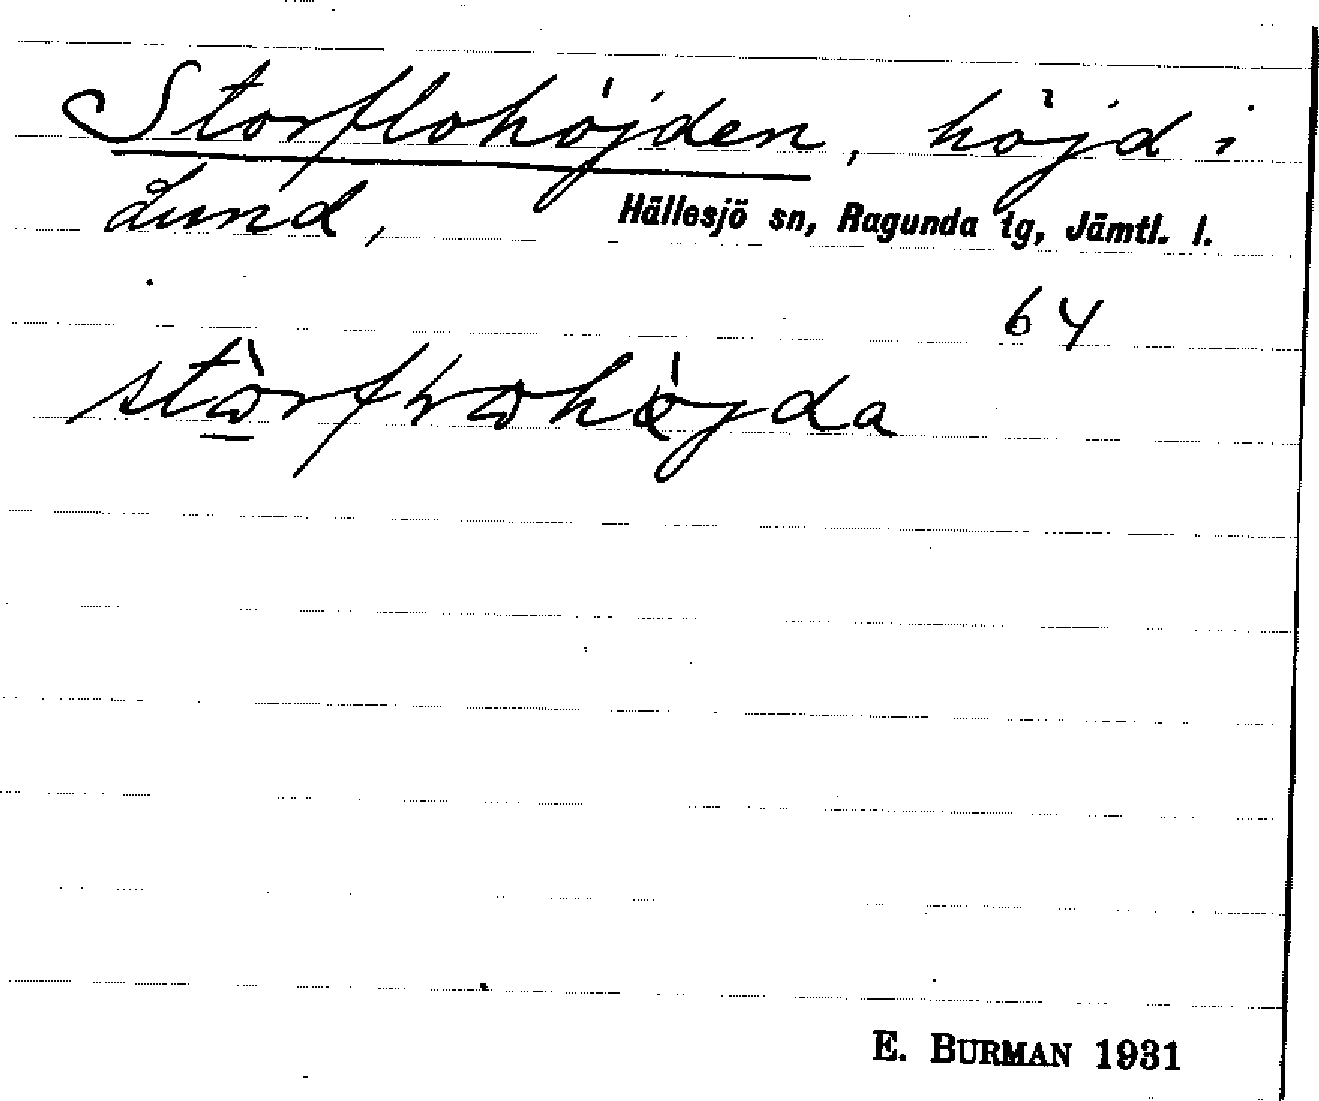 Storflohöjden, höjd i
Lund, Hällesjö sn, Ragunda tg, Jämtl. l.
64
E. BURMAN 1931